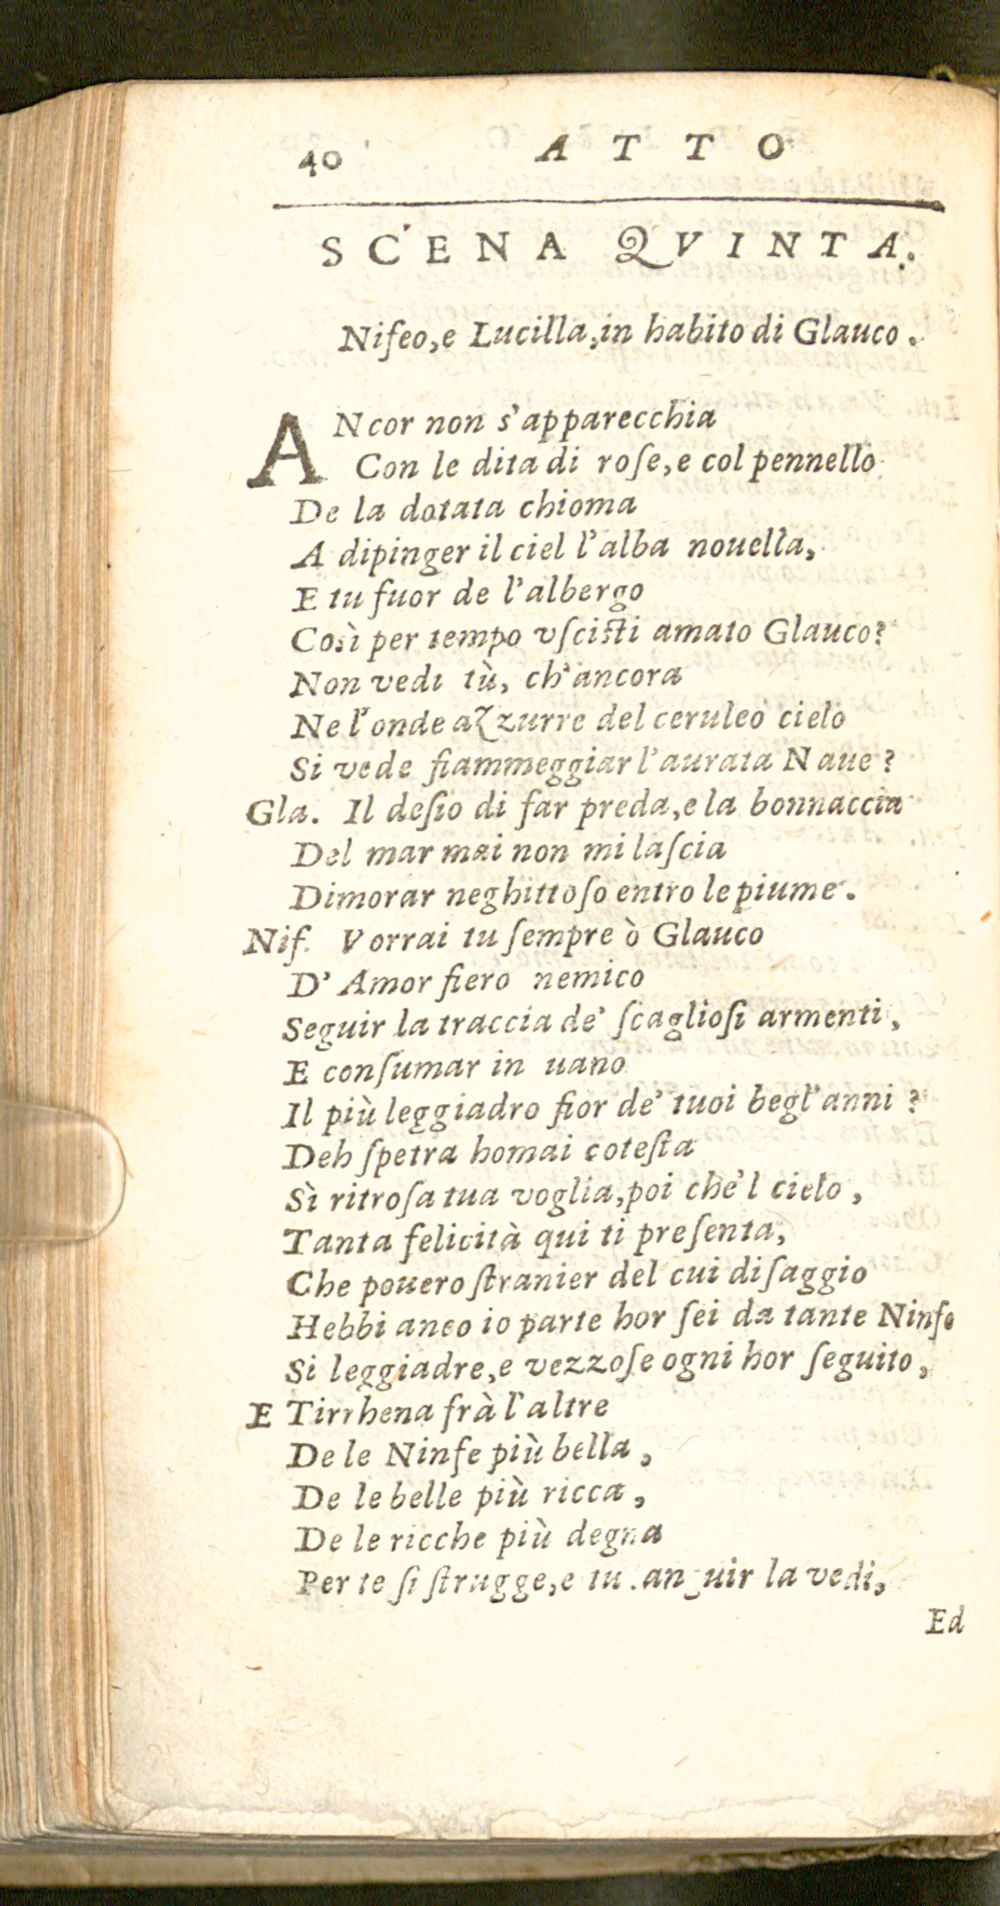 40 ATTO
SCENA QVINTA.
Niſeo, e Lucilla, in habito di Glauco.
ANcor non s'apparecchia
Con le dita di roſe, e col pennello
De la dotata chioma
A dipinger il ciel l'alba nouella,
E tu fuor de l'albergo
Così per tempo vſciſti amato Glauco?
Non vedi tù, ch'ancora
Ne l'onde azzurre del ceruleo cielo
Si vede fiammeggiar l'aurata Naue?
Gla. Il deſio di far preda, e la bonnaccia
Del mar mai non mi laſcia
Dimorar neghittoſo entro le piume.
Niſ. Vorrai tu ſempre ò Glauco
D'Amor fiero nemico
Seguir la traccia de' ſcaglioſi armenti,
E conſumar in uano
Il più leggiadro fior de' tuoi begl'anni?
Deh ſpetra homai coteſta
Sì ritroſa tua voglia, poi che'l cielo,
Tanta felicità qui ti preſenta,
Che pouero ſtranier del cui diſaggio
Hebbi anco io parte hor ſei da tante Ninfe
Si leggiadre, e vezzoſe ogni hor ſeguito,
E Tirrhena frà l'altre
De le Ninfe più bella,
De le belle più ricca,
De le ricche più degna
Per te ſi ſtrugge, e tu languir la vedi,
Ed